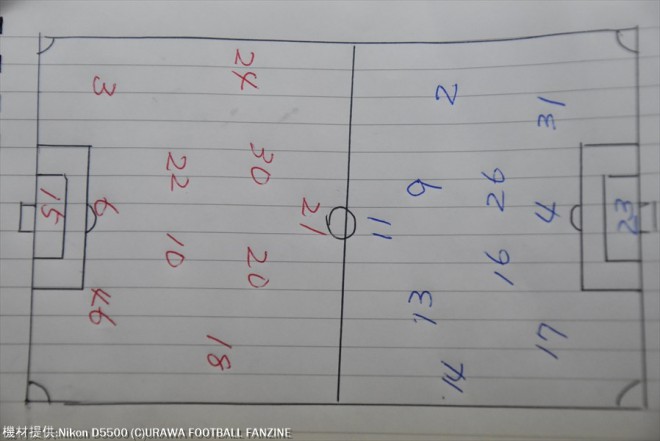 24
3
30
22
21
6
15
20
10
46
18
2
31
9
26
11
4
23
16
13
17
14
機材提供:Nikon D5500 (C)URAWA FOOTBALL FANZINE